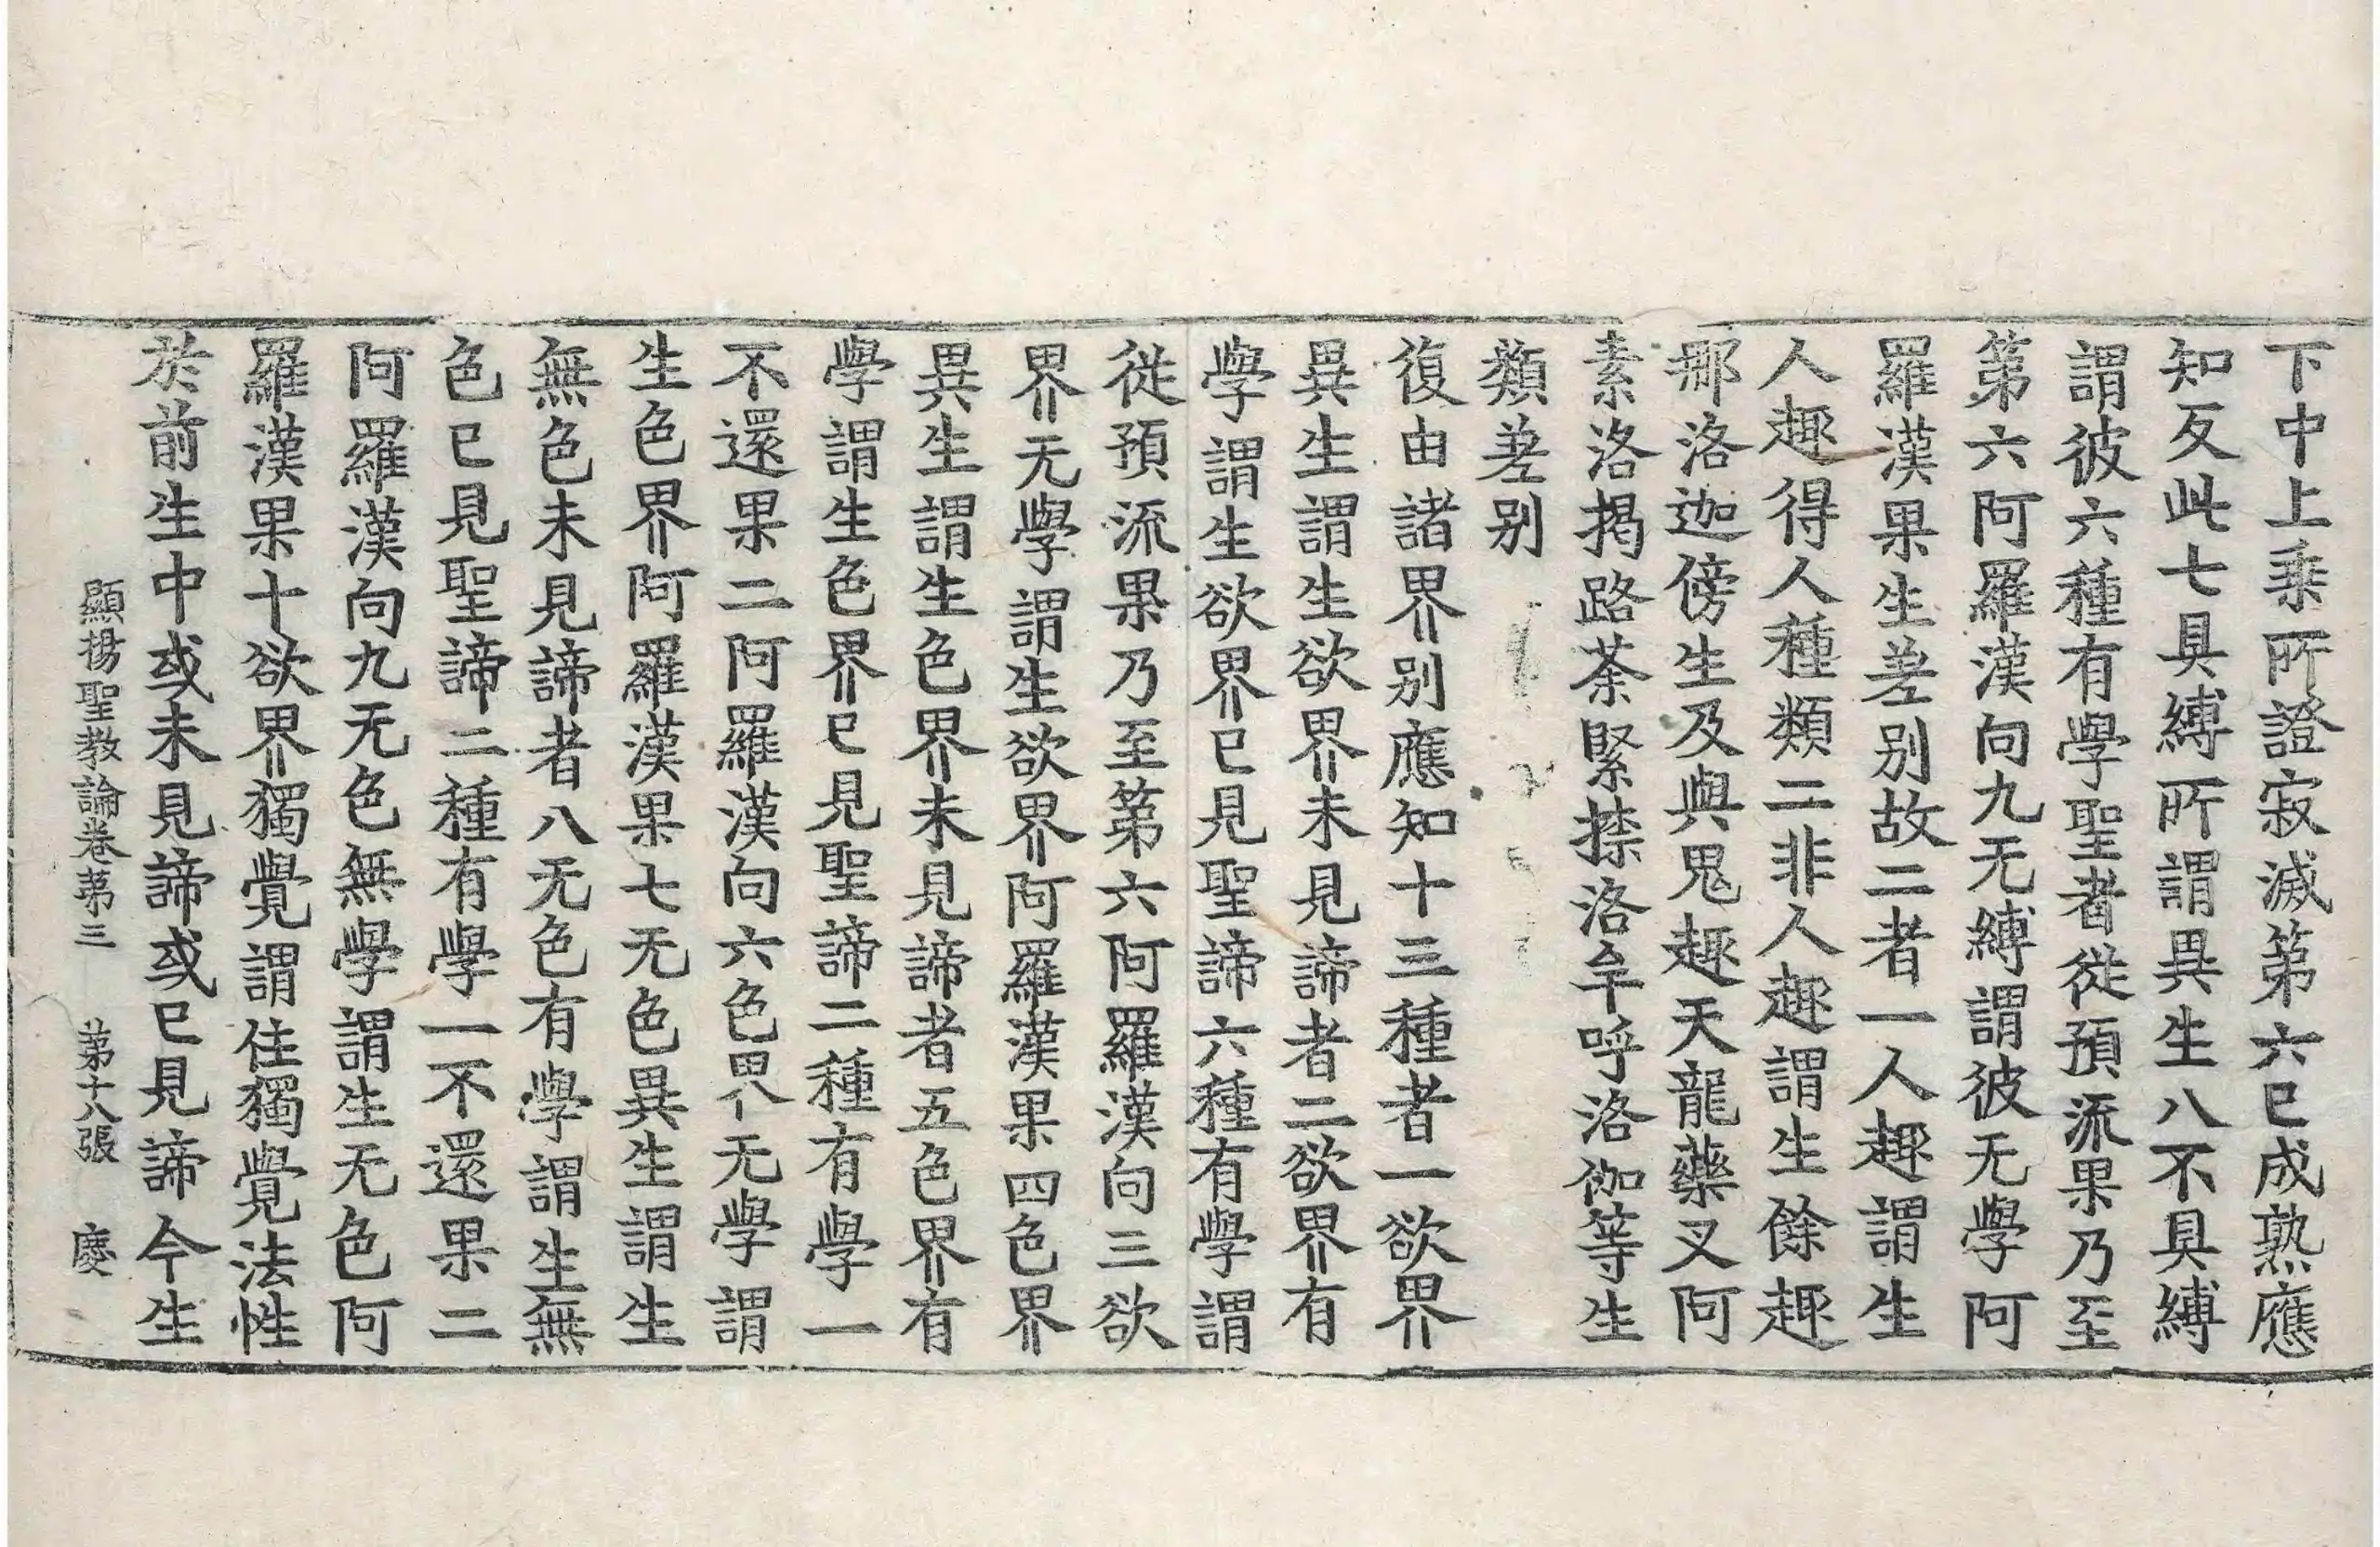 下中上乘所證寂滅第六已成熟應
知反此七具縛所謂異生八不具縛
謂彼六種有學聖者從預流果乃至
第六阿羅漢向九无縛謂彼无學阿
羅漢果生差别故二者一人趣謂生
人趣得人種類二非人趣謂生餘趣
那洛迦傍生及與鬼趣天龍藥叉阿
素洛揭路荼緊捺洛牟呼洛伽等生
類差别
復由諸界别應知十三種者一欲界
異生謂生欲界未見諦者二欲界有
學謂生欲界已見聖諦六種有學謂
從預流果乃至第六阿羅漢向三欲
界无學謂生欲界阿羅漢果四色界
異生謂生色界未見諦者五色界有
學謂生色界已見聖諦二種有學一
不還果二阿羅漢向六色界无學謂
生色界阿羅漢果七无色異生謂生
無色未見諦者八无色有學謂生無
色已見聖諦二種有學一不還果二
阿羅漢向九无色無學謂生无色阿
羅漢果十欲界獨覺謂住獨覺法性
於前生中或未見諦或已見諦今生
顯揚聖教論卷第三 第十八張 慶